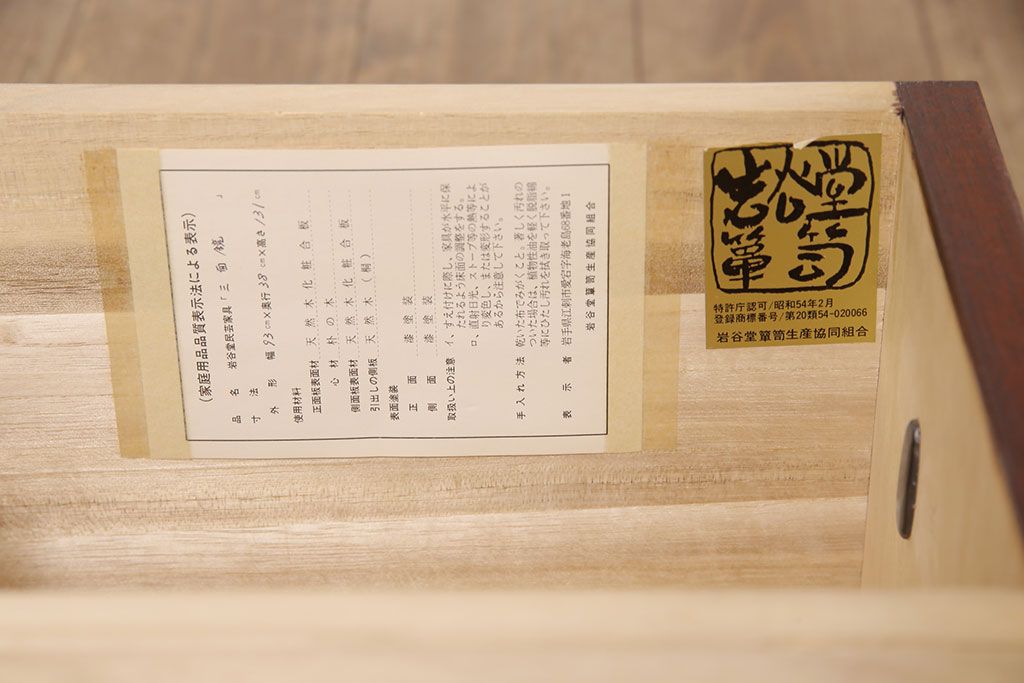 (家庭用品品質表示法による表示)
品名 岩谷堂民芸家具「三面鏡」
寸法
外形 幅93cm×奥行38cm×高さ131cm
使用材料
正面板表面材 天然木化粧合板
心材 朴の木
側面板表面材 天然木化粧合板
引出しの側板 天然木(桐)
表面塗装
正面 漆塗装
側面 漆塗装
取扱い上の注意 イ、すえ付けに際し、家具が水平に保
たれるよう床面の調整をする。
ロ、直射日光、ストーブ等の熱等によ
り変色し、または変形することが
あるから注意して下さい。
手入れ方法 乾いた布でみがくこと。著しく汚れの
ついた場合は、植物性油を軽く脱脂綿
等にひたし汚れを拭き取って下さい。
表示者 岩手県江刺市愛宕字海老島68番地1
岩谷堂簞笥生産協同組合
岩谷堂簞笥
特許庁認可/昭和54年2月
登録商標番号/第20類54-020066
岩谷堂簞笥生産協同組合